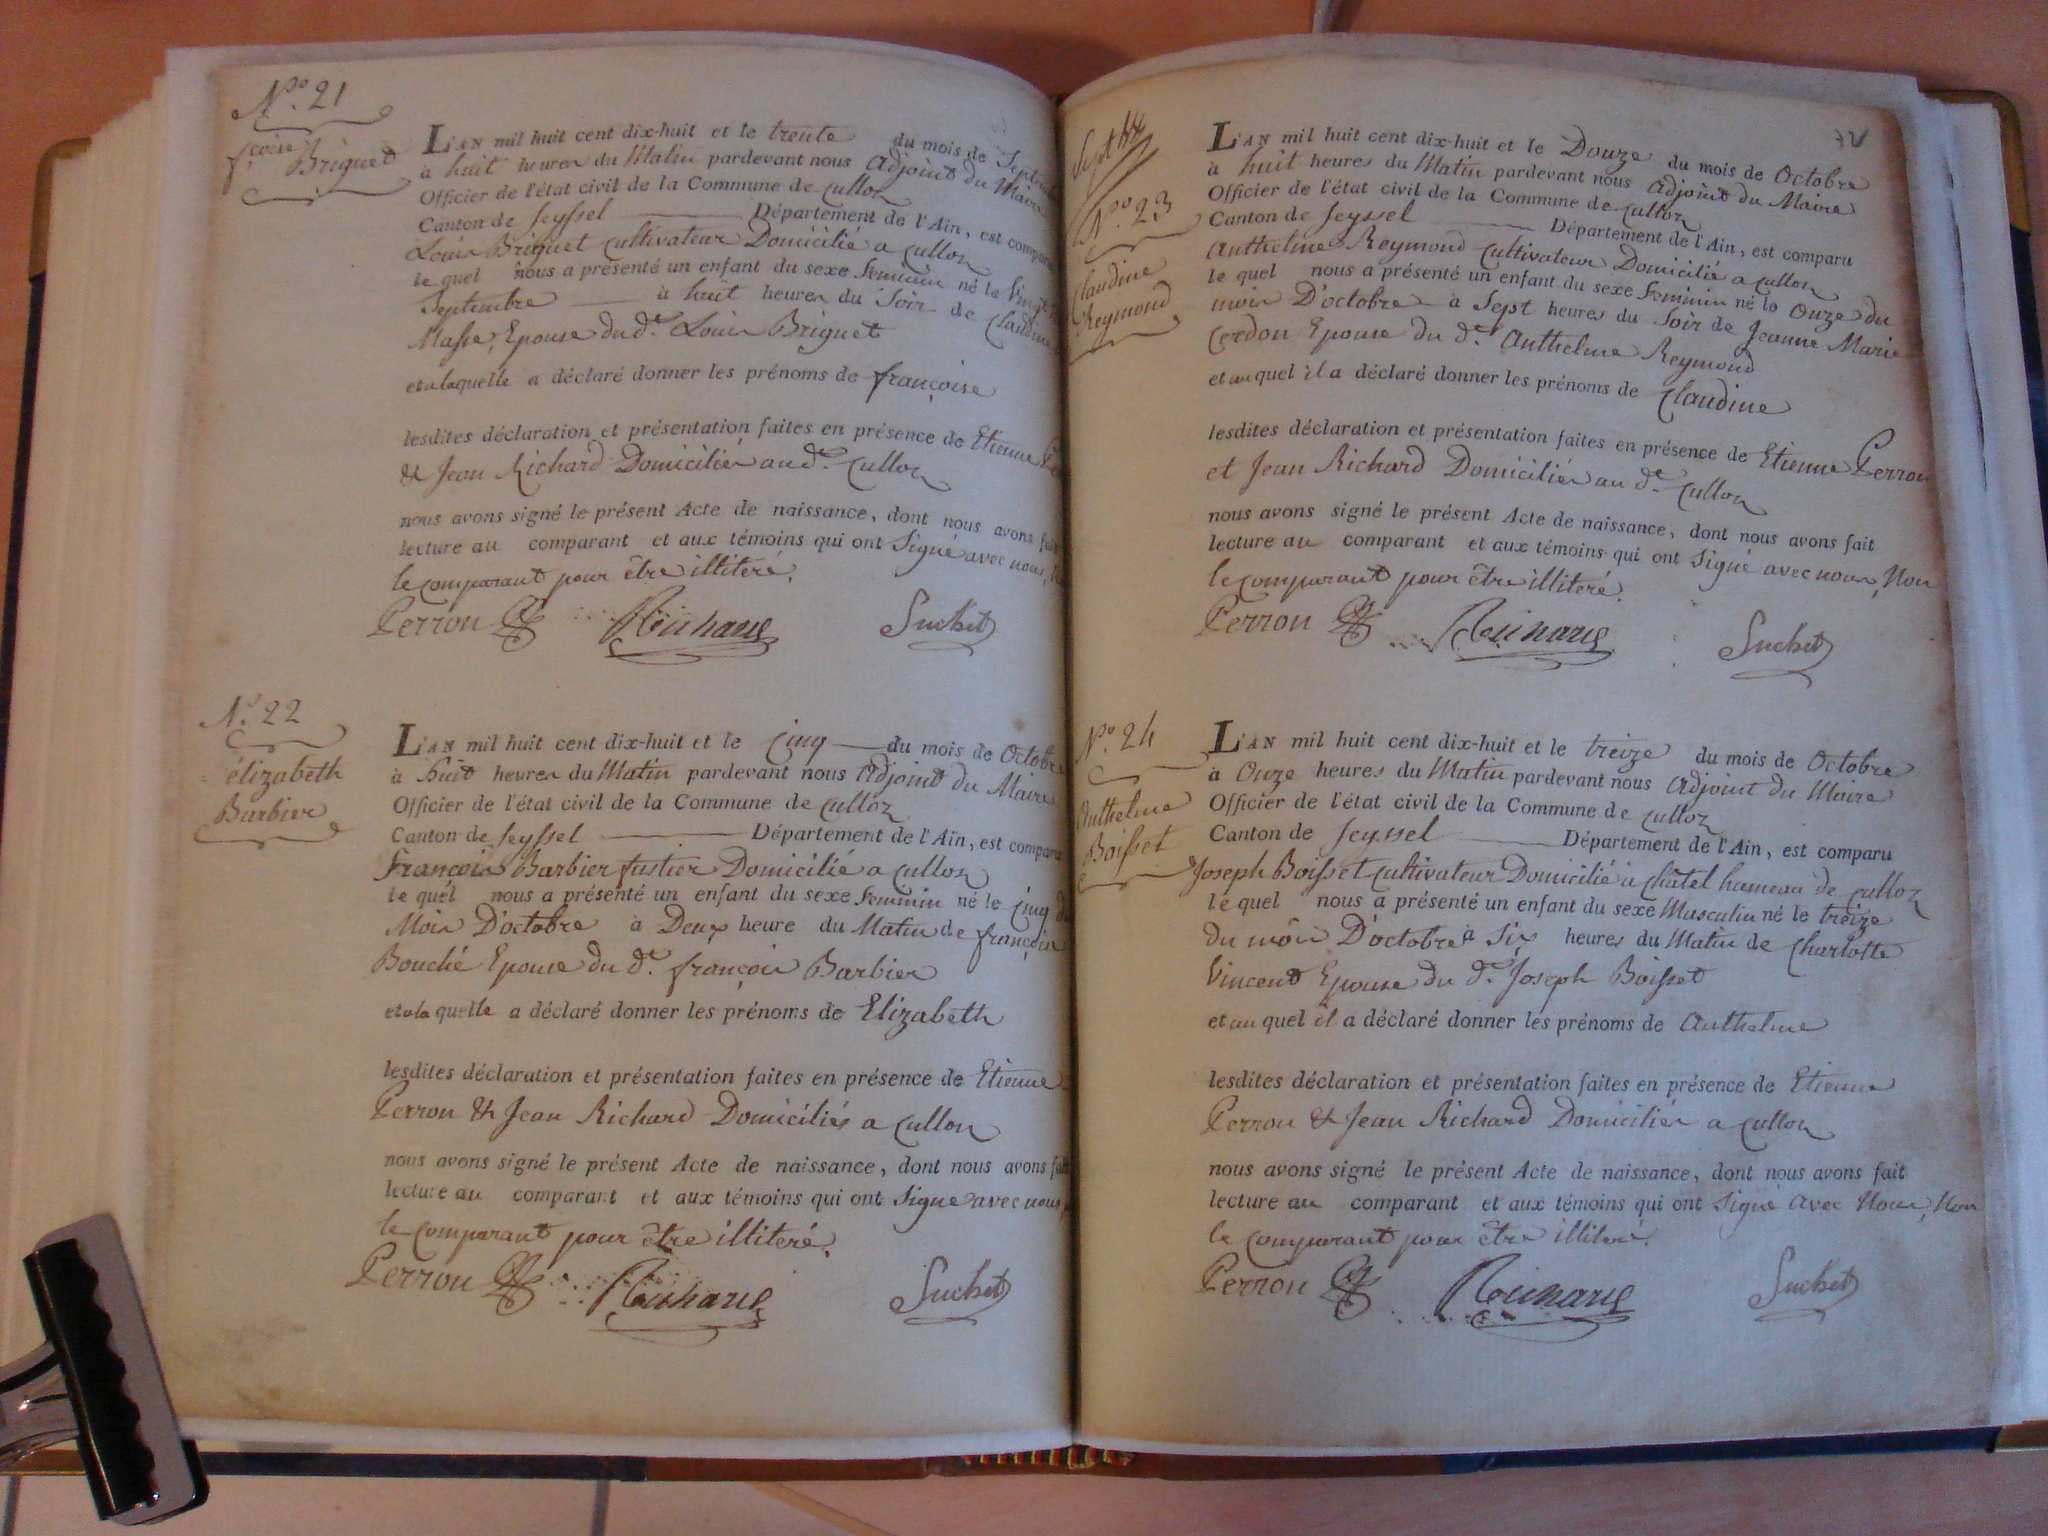 N.º 21
Briguet
L'AN mil huit cent dix-huit et le trente du mois de
à huit heures du Matin pardevant nous Adjoint du Maire
Officier de l'état civil de la Commune de Culloz
Canton de Seyssel Département de l'Ain, est comparu
Louis Briguet Cultivateur Domicilié a Culloz
le quel nous a présenté un enfant du sexe Feminin né le
Septembre à huit heures du Soir de Claudine
Masse, Epouse du d.t Louis Briguet
et a laquelle a déclaré donner les prénoms de françoise
lesdites déclaration et présentation faites en présence de Etienne
& Jean Richard Domiciliés au d.t Culloz
nous avons signé le présent Acte de naissance, dont nous avons fait
lecture au comparant et aux témoins qui ont Signé avec nous,
le comparant pour être illiteré.
Perron Richard Suchet
N.º 22
élizabeth
Barbier
L'AN mil huit cent dix-huit et le Cinq du mois de Octobre
à huit heures du Matin pardevant nous Adjoint du Maire
Officier de l'état civil de la Commune de Culloz
Canton de Seyssel Département de l'Ain, est comparu
François Barbier fustier Domicilié a Culloz
le quel nous a présenté un enfant du sexe Feminin né le Cinq du
Mois D'octobre à Deux heure du Matin de françoise
Bouché Epouse du d.t françois Barbier
et a la quelle a déclaré donner les prénoms de Elizabeth
lesdites déclaration et présentation faites en présence de Etienne
Perron & Jean Richard Domiciliés a Culloz
nous avons signé le présent Acte de naissance, dont nous avons fait
lecture au comparant et aux témoins qui ont Signé avec nous
le comparant pour être illiteré.
Perron Richard Suchet
N.º 23
Claudine
Reymond
L'AN mil huit cent dix-huit et le Douze du mois de Octobre
à huit heures du Matin pardevant nous Adjoint du Maire
Officier de l'état civil de la Commune de Culloz
Canton de Seyssel Département de l'Ain, est comparu
Anthelme Reymond Cultivateur Domicilié a Culloz
le quel nous a présenté un enfant du sexe Feminin né le Onze du
mois D'octobre à Sept heures du Soir de Jeanne Marie
Cerdon Epouse du d.t Anthelme Reymond
et au quel il a déclaré donner les prénoms de Claudine
lesdites déclaration et présentation faites en présence de Etienne Perron
et Jean Richard Domiciliés au d.t Culloz
nous avons signé le présent Acte de naissance, dont nous avons fait
lecture au comparant et aux témoins qui ont Signé avec nous, Non
le comparant pour être illiteré.
Perron Richard Suchet
N.º 24
Anthelme
Boisset
L'AN mil huit cent dix-huit et le treize du mois de Octobre
à Onze heures du Matin pardevant nous Adjoint du Maire
Officier de l'état civil de la Commune de Culloz
Canton de Seyssel Département de l'Ain, est comparu
Joseph Boisset Cultivateur Domicilié à Châtel hameau de Culloz
le quel nous a présenté un enfant du sexe Masculin né le treize
du mois D'octobre à Six heures du Matin de Charlotte
Vincent Epouse du d.t Joseph Boisset
et au quel il a déclaré donner les prénoms de Anthelme
lesdites déclaration et présentation faites en présence de Etienne
Perron & Jean Richard Domiciliés a Culloz
nous avons signé le présent Acte de naissance, dont nous avons fait
lecture au comparant et aux témoins qui ont Signé avec Nous, Non
le comparant pour être illiteré.
Perron Richard Suchet